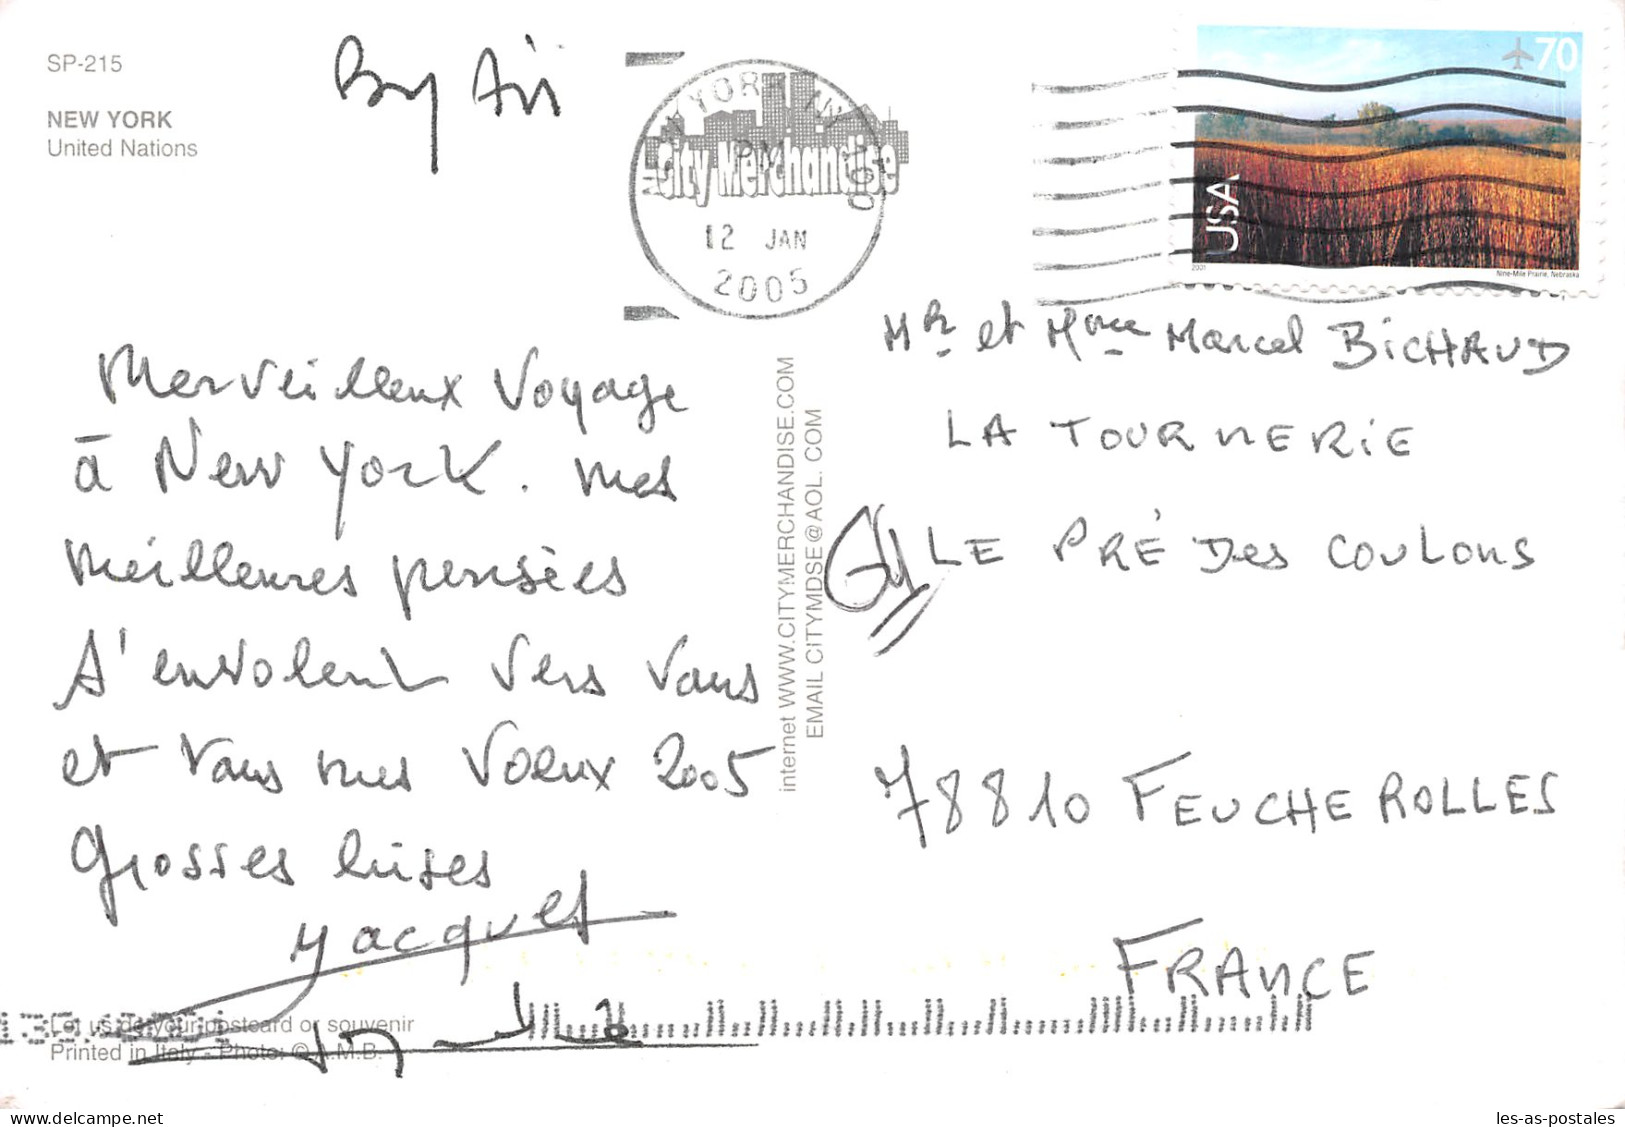 SP-215
NEW YORK
United Nations
By Air
NEW YORK NY 100
PM
City Merchandise
12 JAN
2005
70
USA
2001
Nine-Mile Prairie, Nebraska
Merveilleux Voyage
à New York. mes
meilleures pensées
s'envolent vers vous
et vous mes Voeux 2005
Grosses bises
Jacques
internet WWW.CITYMERCHANDISE.COM
EMAIL CITYMDSE@AOL. COM
Mr et Mme Marcel BICHAUD
LA TOURNERIE
LE PRÉ Des COULONS
78810 FEUCHEROLLES
FRANCE
Let us do your postcard or souvenir
Printed in Italy - Photo: © A.M.B.
delcampe.net
les-as-postales